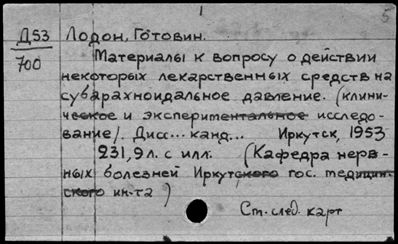 5
Д53 Лодон. Готовин.
700 Материалы к вопросу о действии
некоторых лекарственных средств на
субарахноидальное давление. (клини-
ческое и экспериментальное исследо-
вание). Дисс... канд... Иркутск, 1953
231,9 л. с илл. (Кафедра нерв-
ных болезней Иркутского гос. медицин-
ского ин-та)
См. след. карт